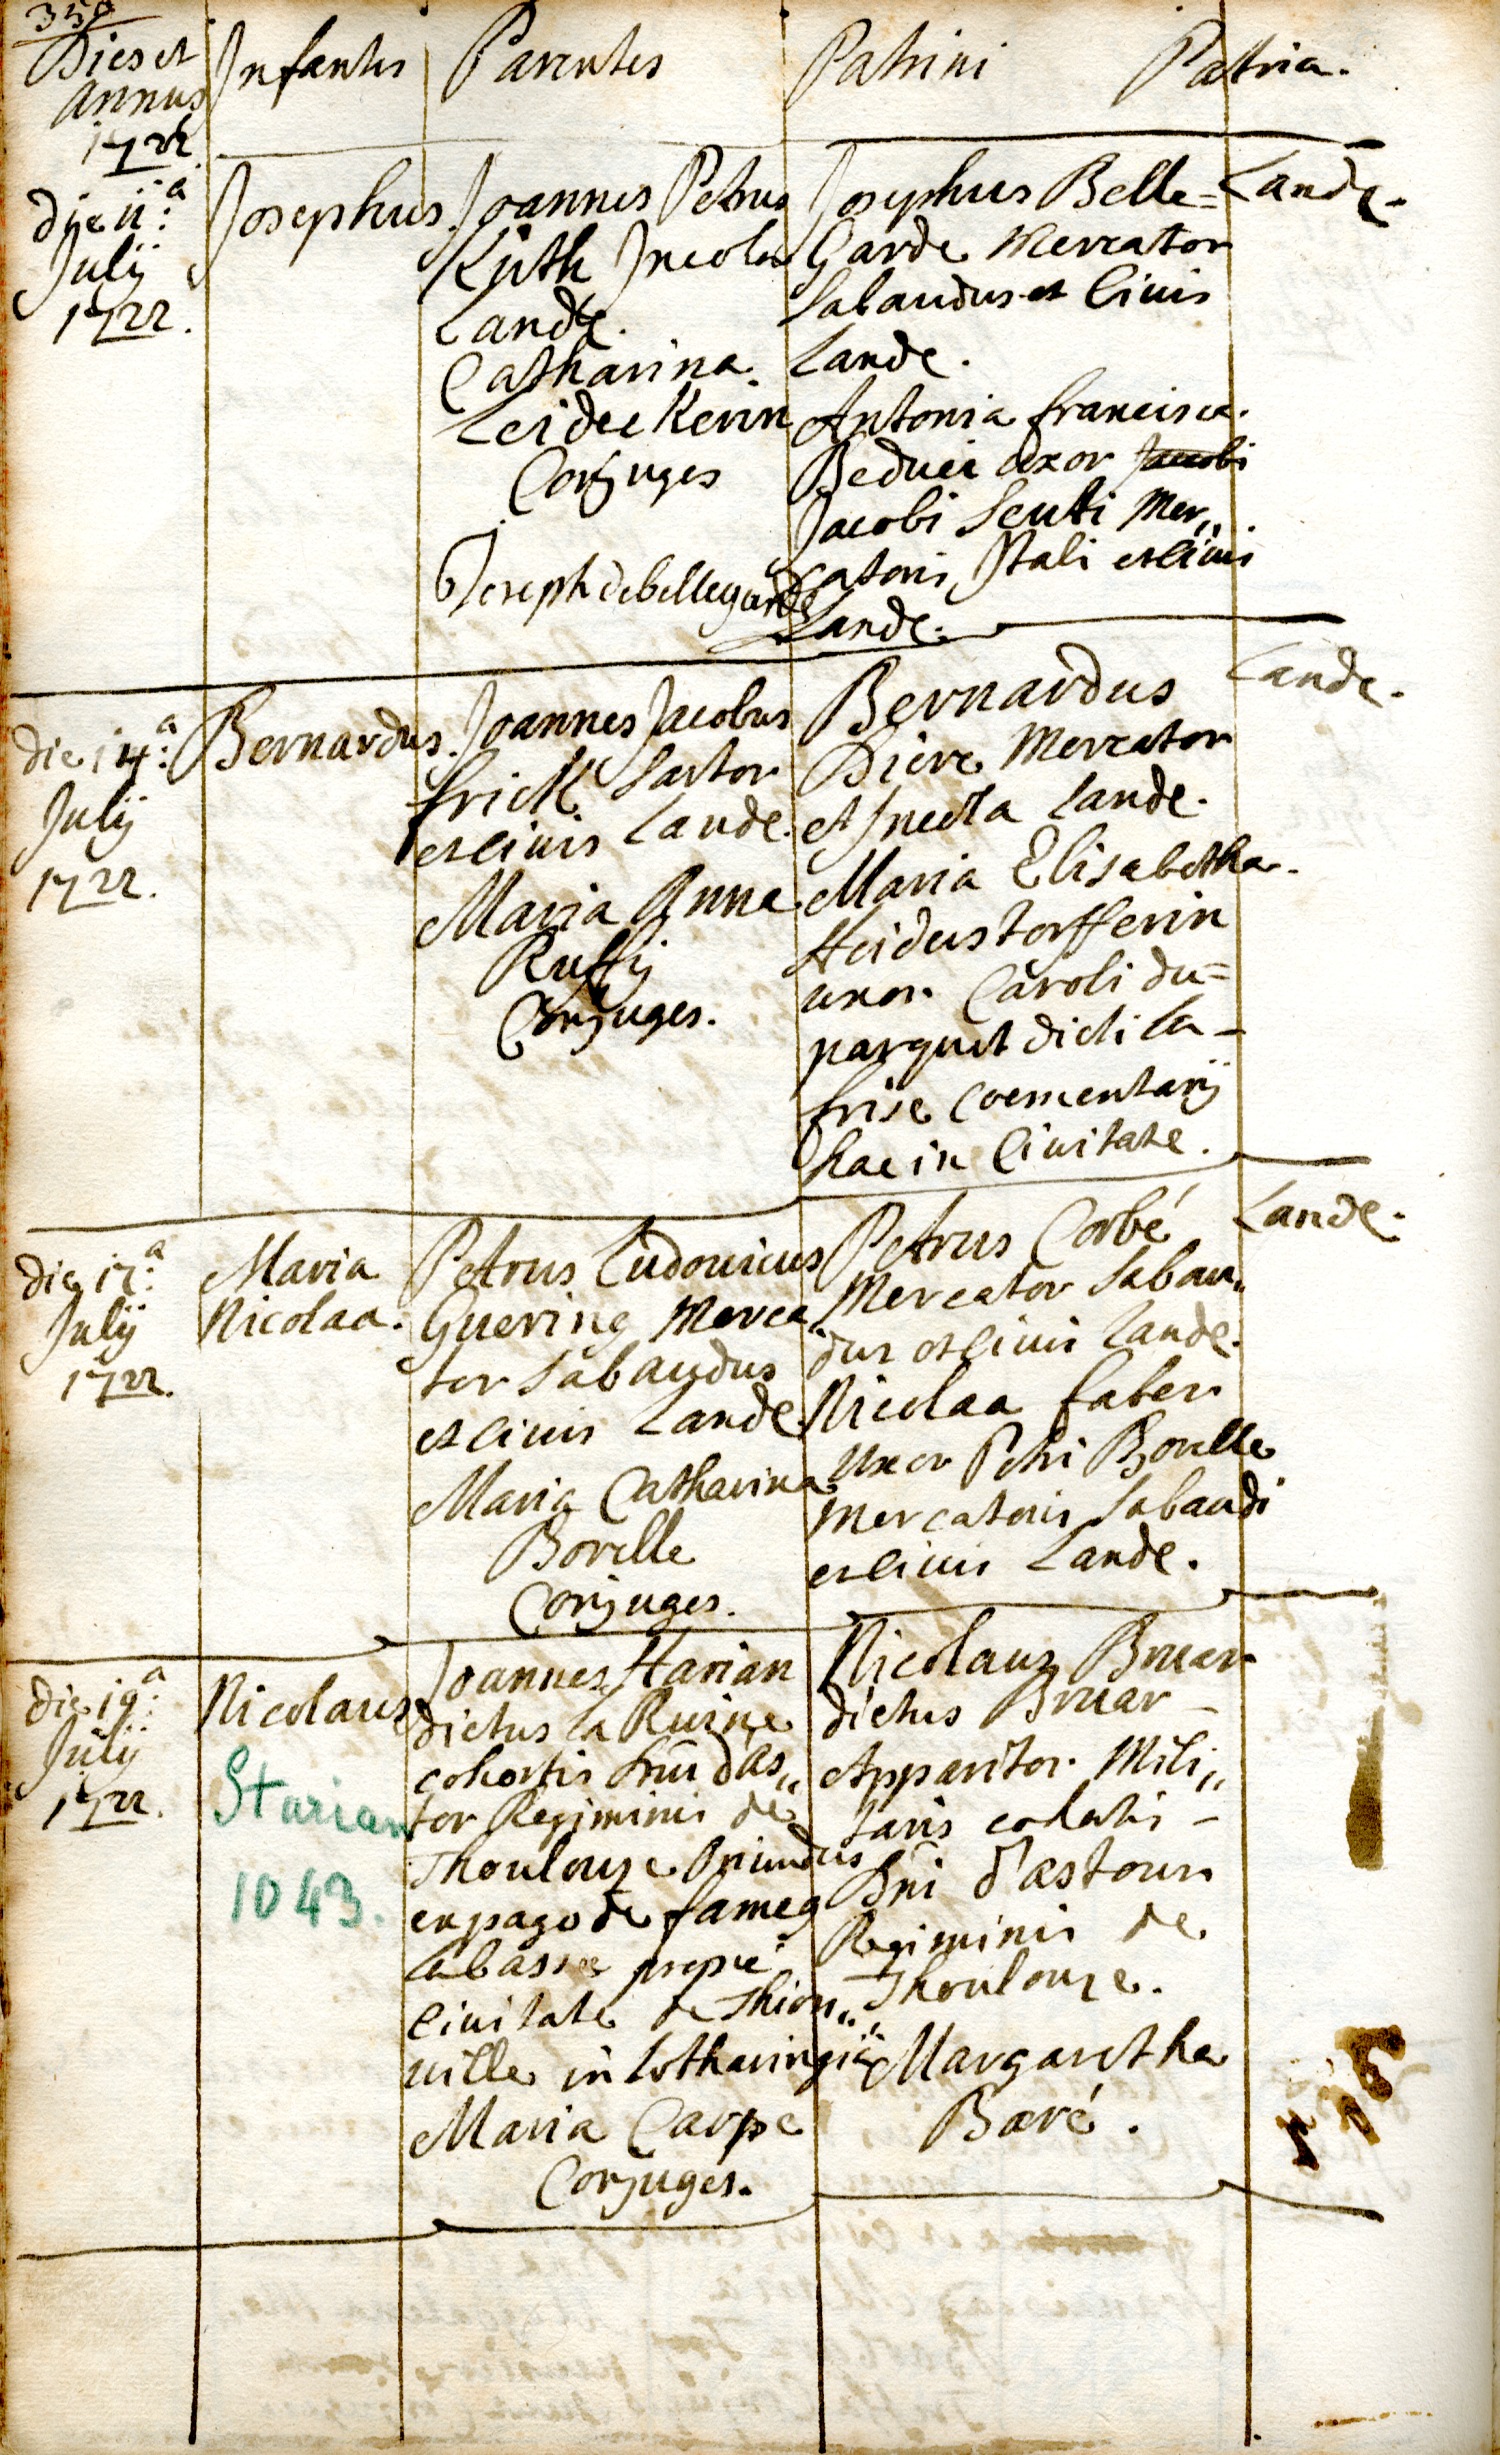 350
Dies et
annus
1722
Infantes
Parentes
Patrini
Patria.
die 11:a
Julij
1722.
Josephus.
Joannes Petrus
Küth Incola
Landæ.
Catharina
Leideckerin
Conjuges
Joseph debellegarde
Josephus Belle=
Garde Mercator
Sabaudus et Civis
Landæ.
Antonia francisca
Beduci uxor Jacobi
Jacobi Scuti Mer,,
catoris Itali et civis
Landæ.
Landæ.
die 14:a
Julij
1722.
Bernardus.
Joannes Jacobus
frick Sartor
et civis Landæ.
Maria Anna
Ruffj
Conjuges.
Bernardus
Dière Mercator
et Incola Landæ.
Maria Elisabetha
Heiderstorfferin
uxor Caroli du=
parquet dicti la-
frise Coementarij
hac in Civitate.
Landæ.
die 17:a
Julij
1722.
Maria
Nicolaa.
Petrus Ludovicus
Guering Merca
tor Sabaudus
et civis Landæ
Maria Catharina
Borelle
Conjuges.
Petrus Corbé
Mercator Sabau,,
dus et civis Landæ.
Nicolaa faber
Uxor Petri Borelle
Mercatoris Sabaudi
et civis Landæ.
Landæ.
die 19:a
Julij
1722.
Nicolaus
Starian
1043.
Joannes Harian
dictus la Ruine
cohortis Dni d'as,,
tor Regiminis de
Thoulouze Oriundus
ex pago de fameg
la basse prope
Civitate de Thion,,
ville in Lotharingiæ
Maria Carpe
Conjuges.
Nicolaus Bruar
dictus Bruar-
Apparitor Mili,,
taris cohortis-
Dni d'astour
Regiminis de
Thoulouze.
Margaretha
Baré.